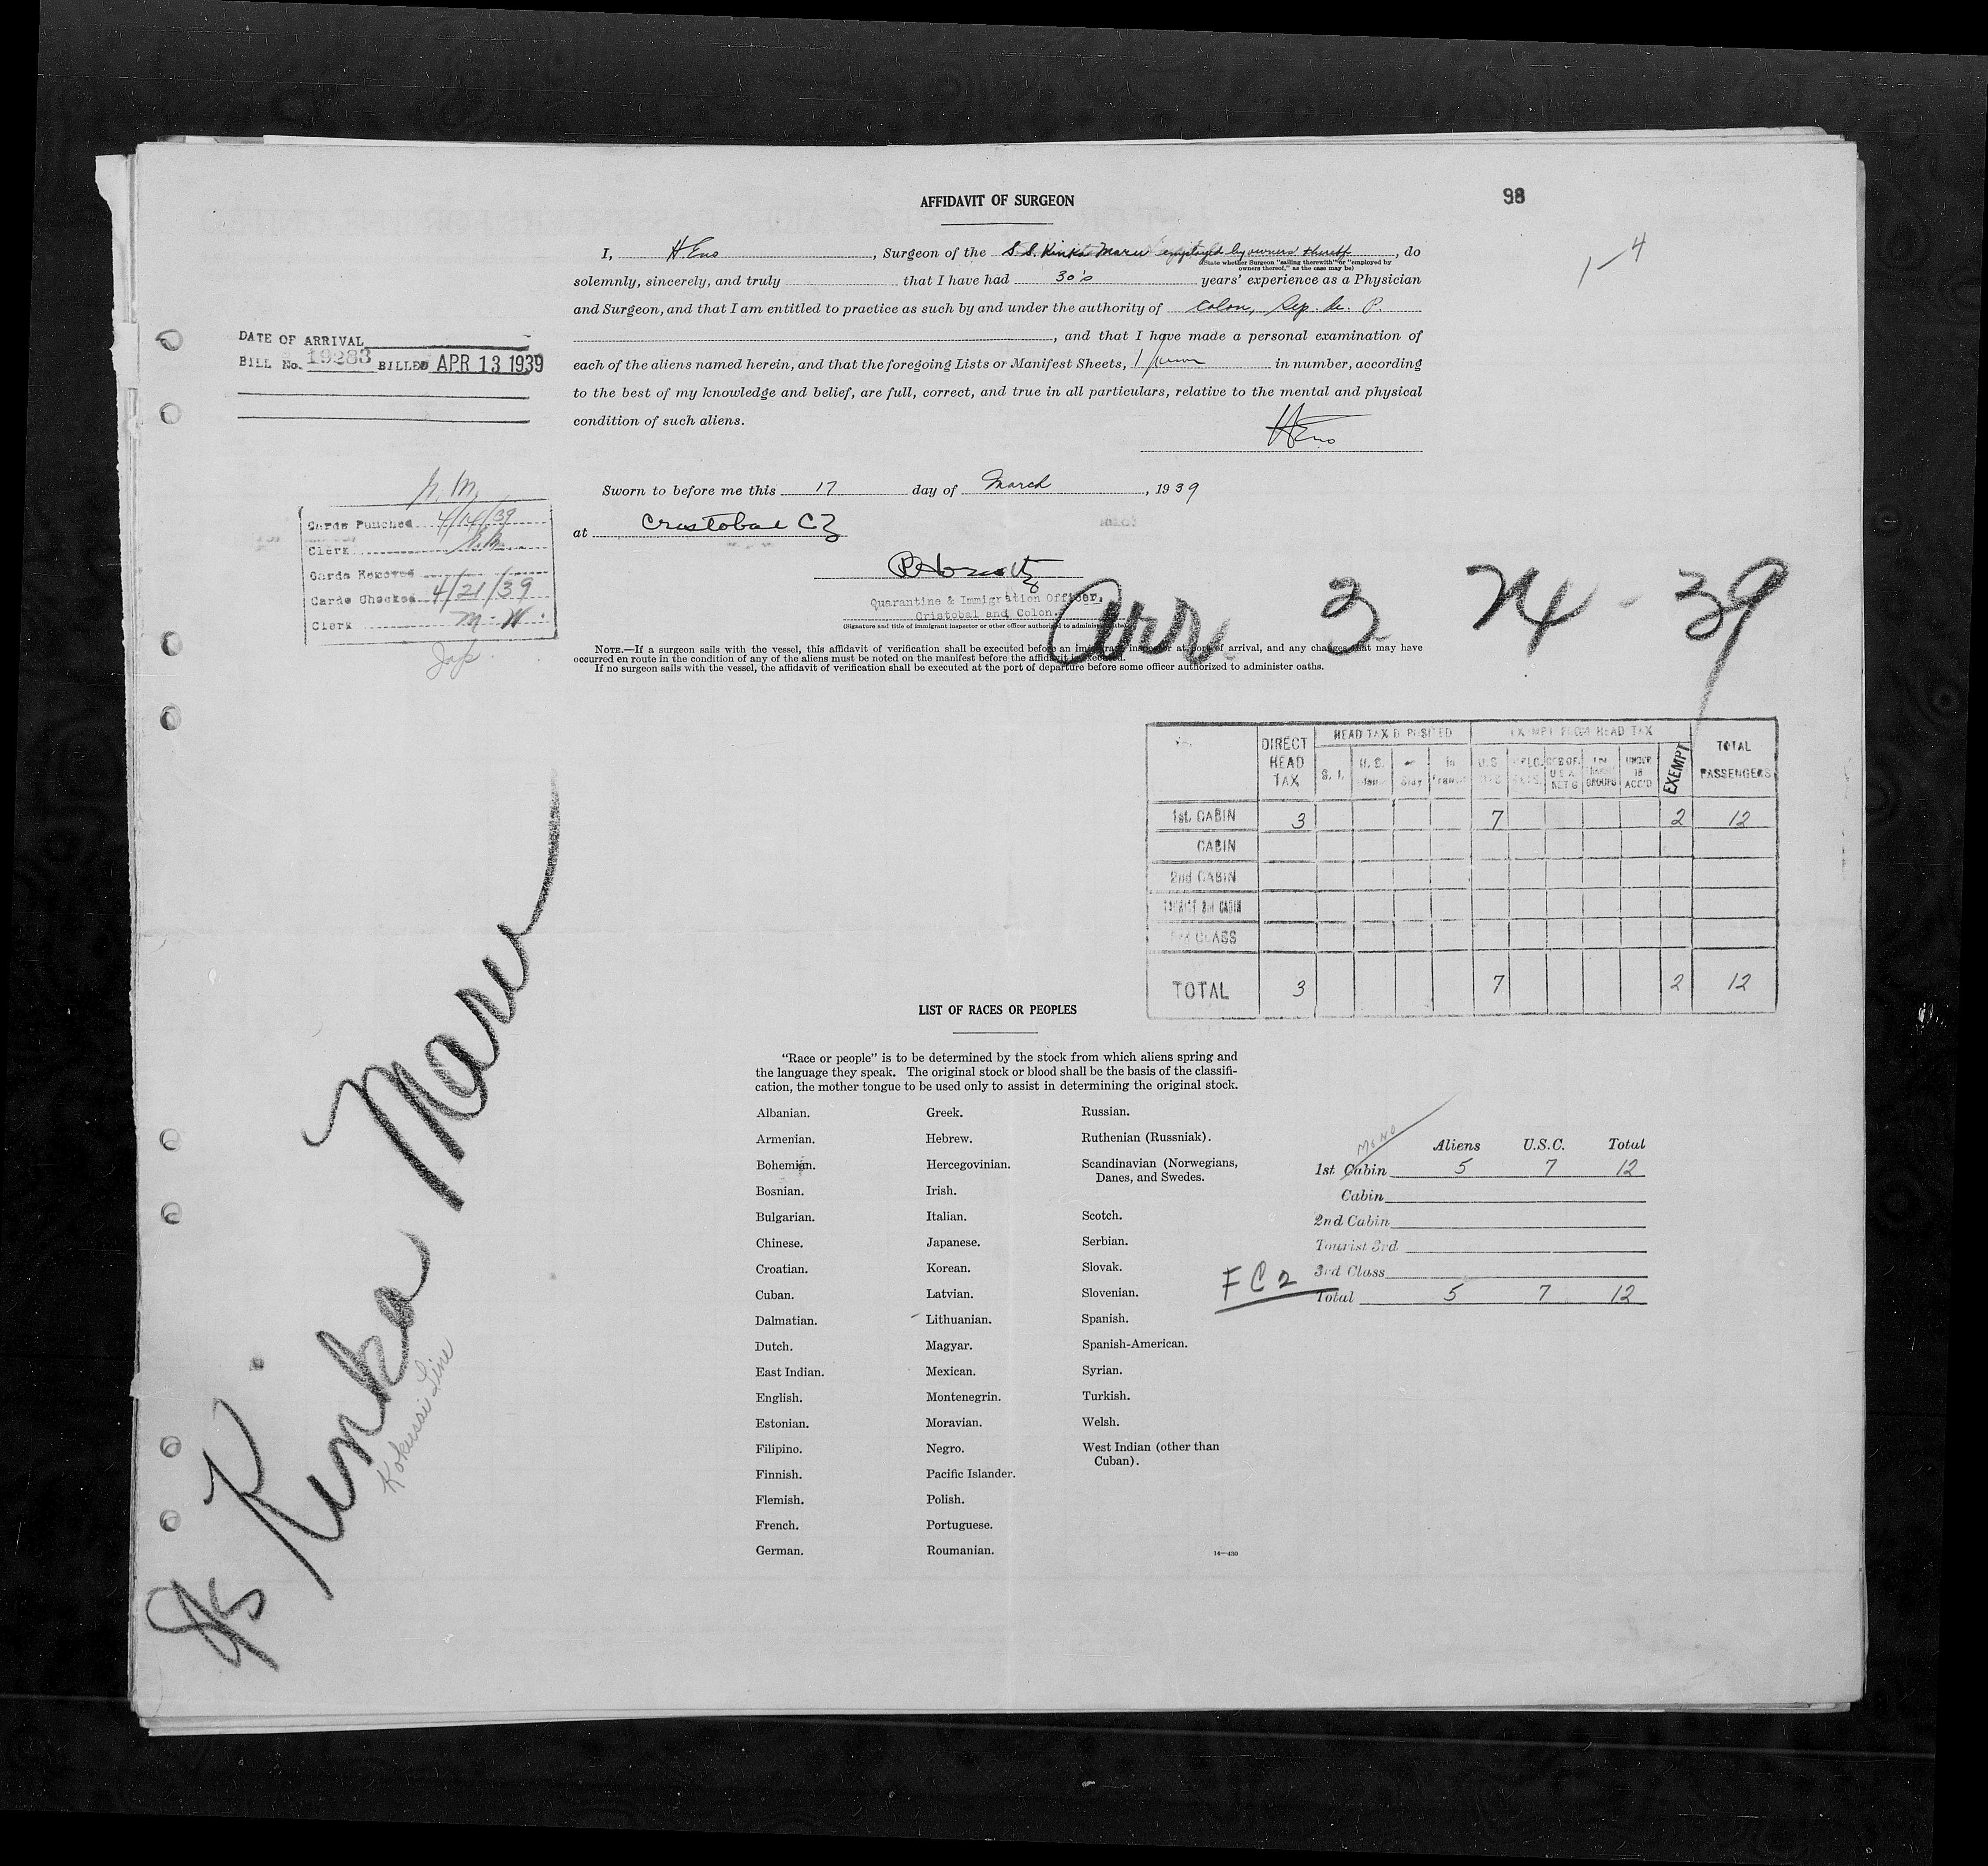 AFFIDAVIT OF SURGEON
98
1-4
I, H Eno, Surgeon of the S.S. Kinka Maru employed by owners' thereof, do
(State whether Surgeon "sailing therewith" or "employed by
owners thereof," as the case may be)
solemnly, sincerely, and truly that I have had 30's years' experience as a Physician
and Surgeon, and that I am entitled to practice as such by and under the authority of Colon, Rep. de. P.
, and that I have made a personal examination of
each of the aliens named herein, and that the foregoing Lists or Manifest Sheets, 1 in number, according
to the best of my knowledge and belief, are full, correct, and true in all particulars, relative to the mental and physical
condition of such aliens.
H Eno
DATE OF ARRIVAL
BILL No. 19283 BILLED APR 13 1939
Sworn to before me this 17 day of March, 1939
at Cristobal CZ
Quarantine & Immigration Officer,
Cristobal and Colon.
(Signature and title of immigrant inspector or other officer authorized to administer
Cards Punched 4/14/39
Clerk
Cards Removed
Cards Checked 4/21/39
Clerk M.W.
Jap
Arr. 3 24-39
NOTE.—If a surgeon sails with the vessel, this affidavit of verification shall be executed before an immigrant inspector at port of arrival, and any changes that may have
occurred en route in the condition of any of the aliens must be noted on the manifest before the affidavit is executed.
If no surgeon sails with the vessel, the affidavit of verification shall be executed at the port of departure before some officer authorized to administer oaths.
DIRECT HEAD TAX
HEAD TAX DEPOSITED
EXEMPT FROM HEAD TAX
EXEMPT
TOTAL PASSENGERS
1st. CABIN 3 7 2 12
CABIN
2nd CABIN
TOURIST 3rd CABIN
3rd CLASS
TOTAL 3 7 2 12
SS Kinka Maru
Kokussi Line
LIST OF RACES OR PEOPLES
"Race or people" is to be determined by the stock from which aliens spring and
the language they speak. The original stock or blood shall be the basis of the classifi-
cation, the mother tongue to be used only to assist in determining the original stock.
Albanian.
Armenian.
Bohemian.
Bosnian.
Bulgarian.
Chinese.
Croatian.
Cuban.
Dalmatian.
Dutch.
East Indian.
English.
Estonian.
Filipino.
Finnish.
Flemish.
French.
German.
Greek.
Hebrew.
Hercegovinian.
Irish.
Italian.
Japanese.
Korean.
Latvian.
Lithuanian.
Magyar.
Mexican.
Montenegrin.
Moravian.
Negro.
Pacific Islander.
Polish.
Portuguese.
Roumanian.
Russian.
Ruthenian (Russniak).
Scandinavian (Norwegians,
Danes, and Swedes.
Scotch.
Serbian.
Slovak.
Slovenian.
Spanish.
Spanish-American.
Syrian.
Turkish.
Welsh.
West Indian (other than
Cuban).
14—430
Aliens U.S.C. Total
1st Cabin 5 7 12
Cabin
2nd Cabin
Tourist 3rd
3rd Class
Total 5 7 12
FC2